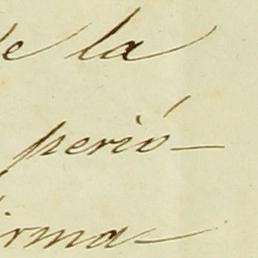 de la
perió-
irma-